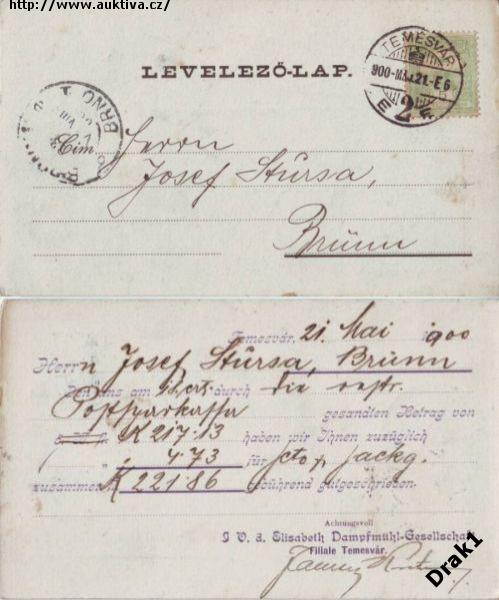 http://www.auktiva.cz/
LEVELEZŐ-LAP.
TEMESVÁR
900-MÁJ 21-E6
2
BRNO
BRÜNN
Czím
Herrn
Josef Stursa,
Brünn
Temesvár, 21. Mai 1900
Herrn Josef Stursa, Brünn
uns am durch die oestr.
Postsparkassa gesandten Betrag von
K 217.13 haben wir Ihnen zuzüglich
" 4.73 für Scto p
zusammen K 221.86 gebührend gutgeschrieben.
Achtungsvoll
I V. d. Elisabeth Dampfmühl-Gesellschaft
Filiale Temesvár.
Drak1